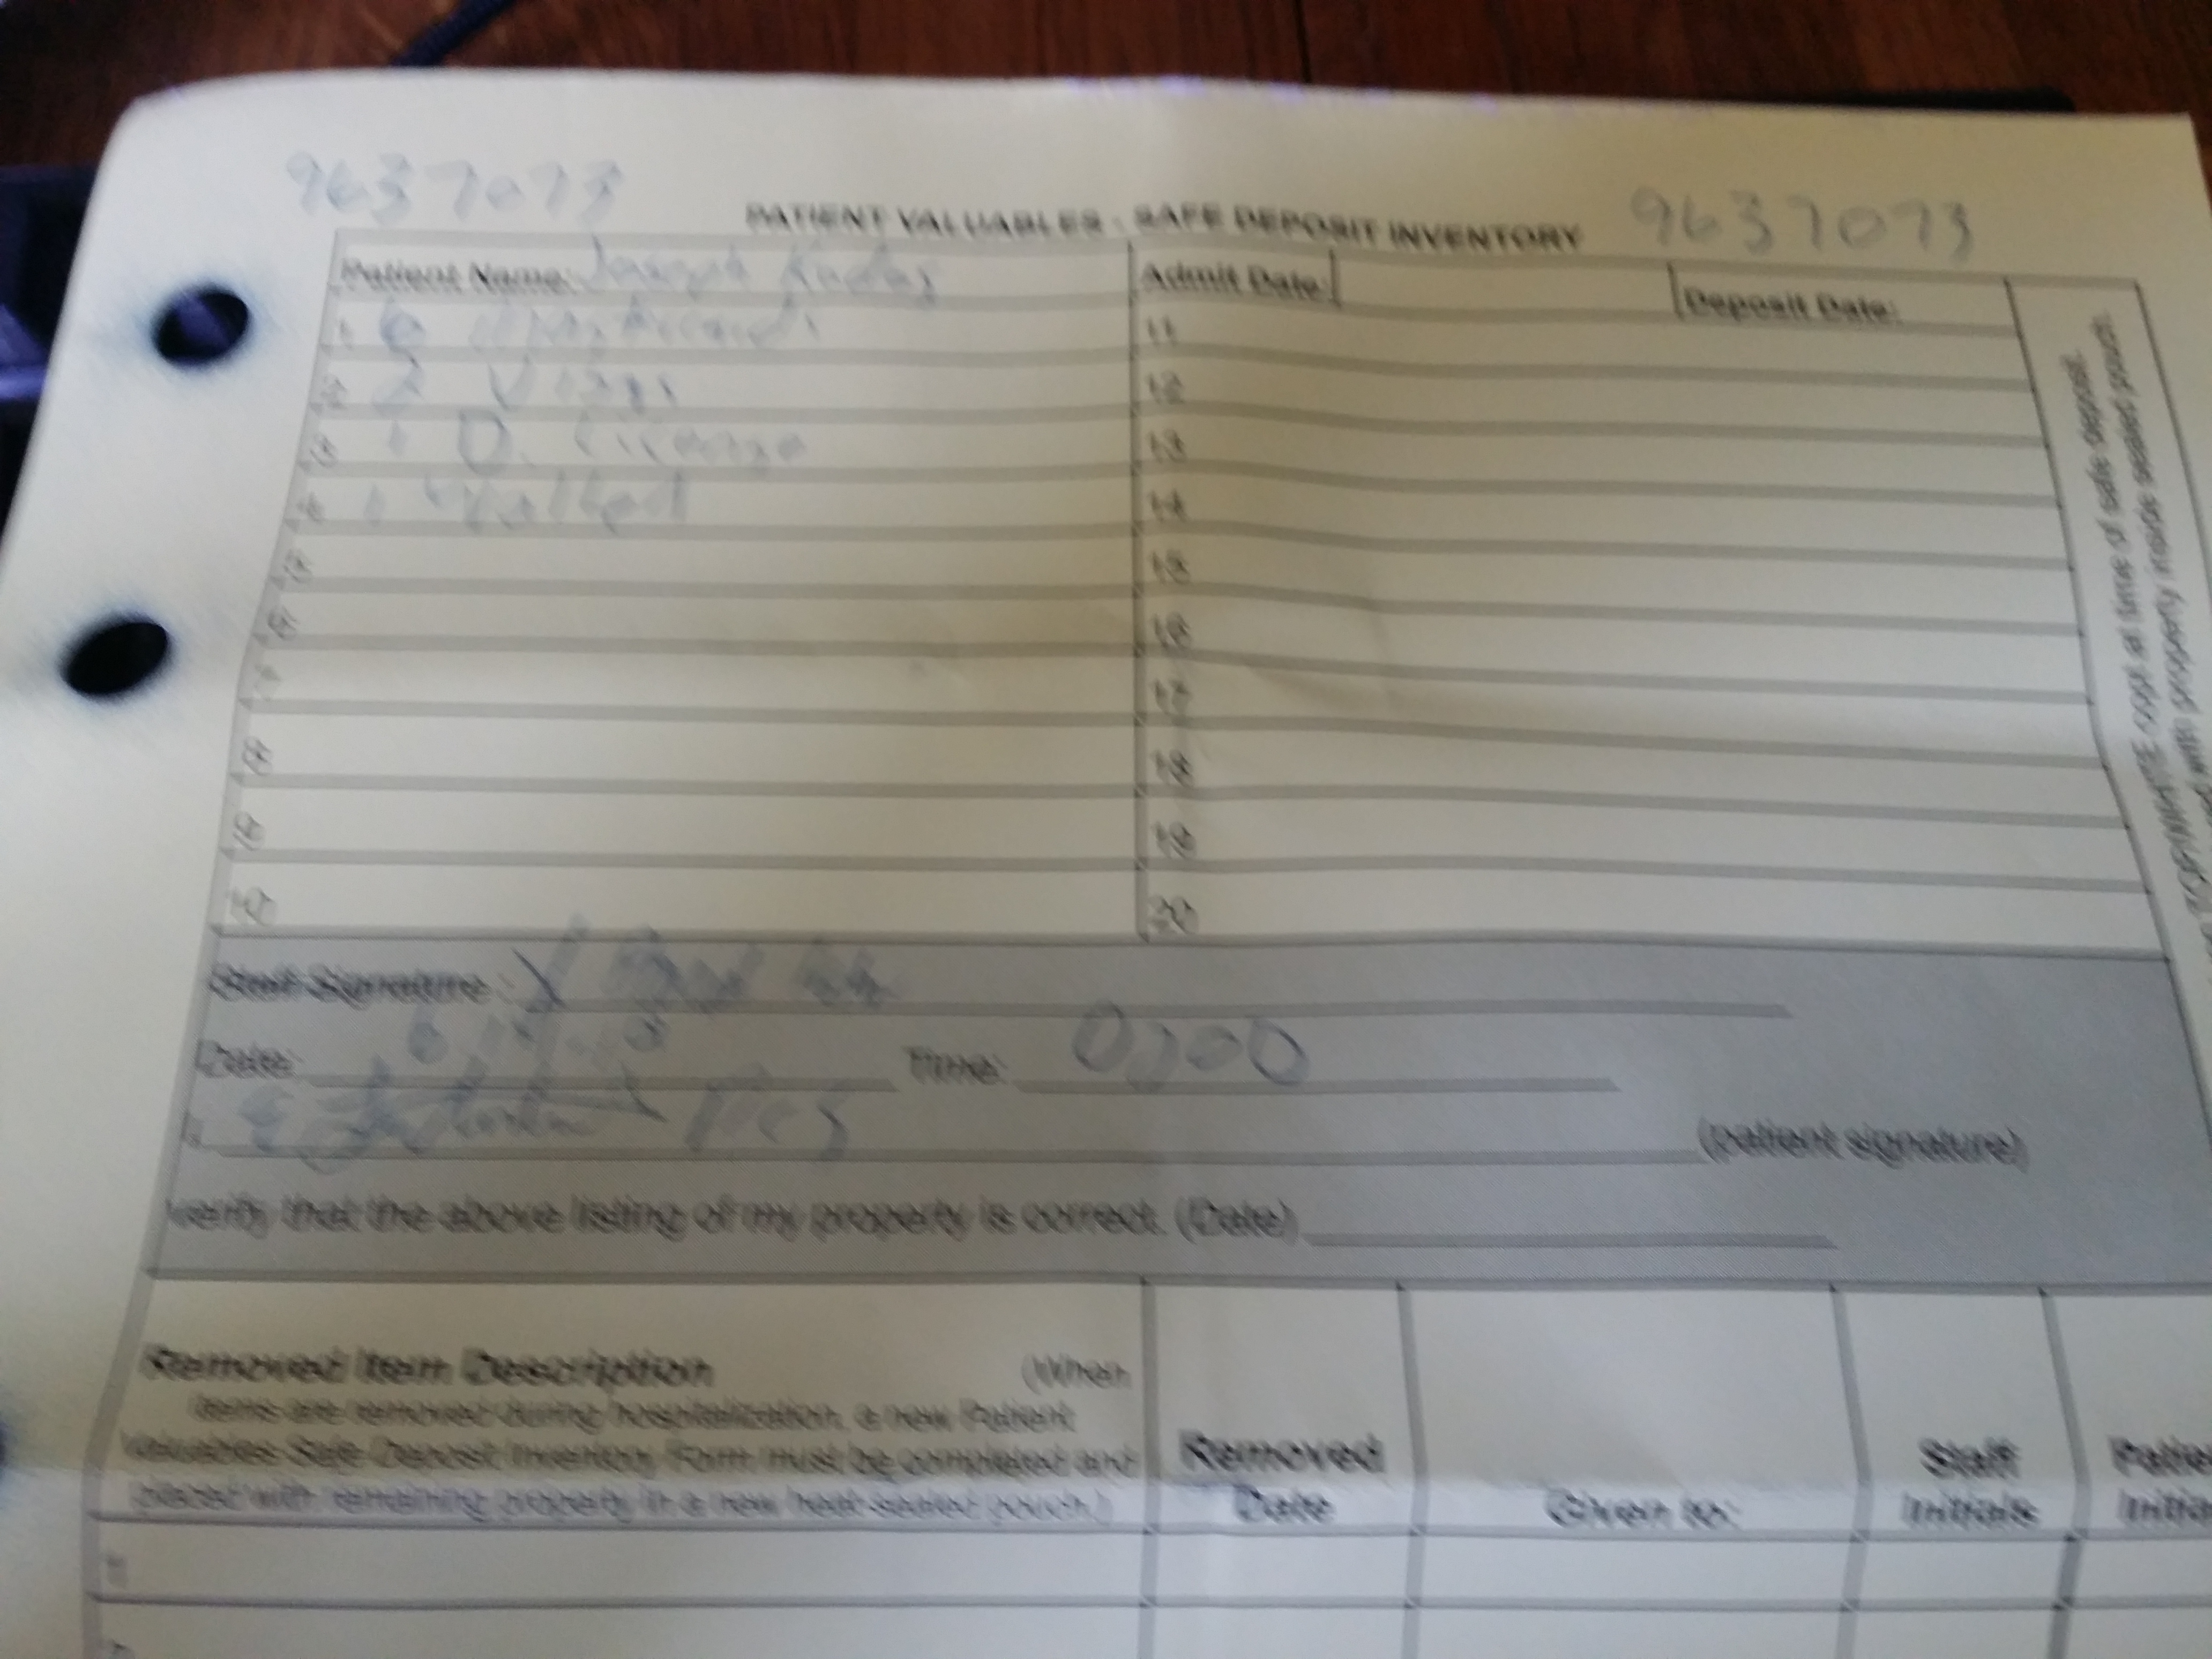 9637073
PATIENT VALUABLES - SAFE DEPOSIT INVENTORY 9637073
Patient Name: Joseph Admit Date: Deposit Date:
1. 6 11
2. 2 Visas 12
3. 1 D. License 13
4. 1 Wallet 14
5. 15
6. 16
7. 17
8. 18
9. 19
10. 20
copy at time of safe deposit.
with property inside sealed pouch.
Staff Signature:
Date: Time: 0700
I, (patient signature)
verify that the above listing of my property is correct. (Date)
Removed Item Description (When
items are removed during hospitalization, a new Patient
Valuables Safe Deposit Inventory Form must be completed and
placed with remaining property in a new heat-sealed pouch.)
Removed
Date
Given to:
Staff
Initials
1